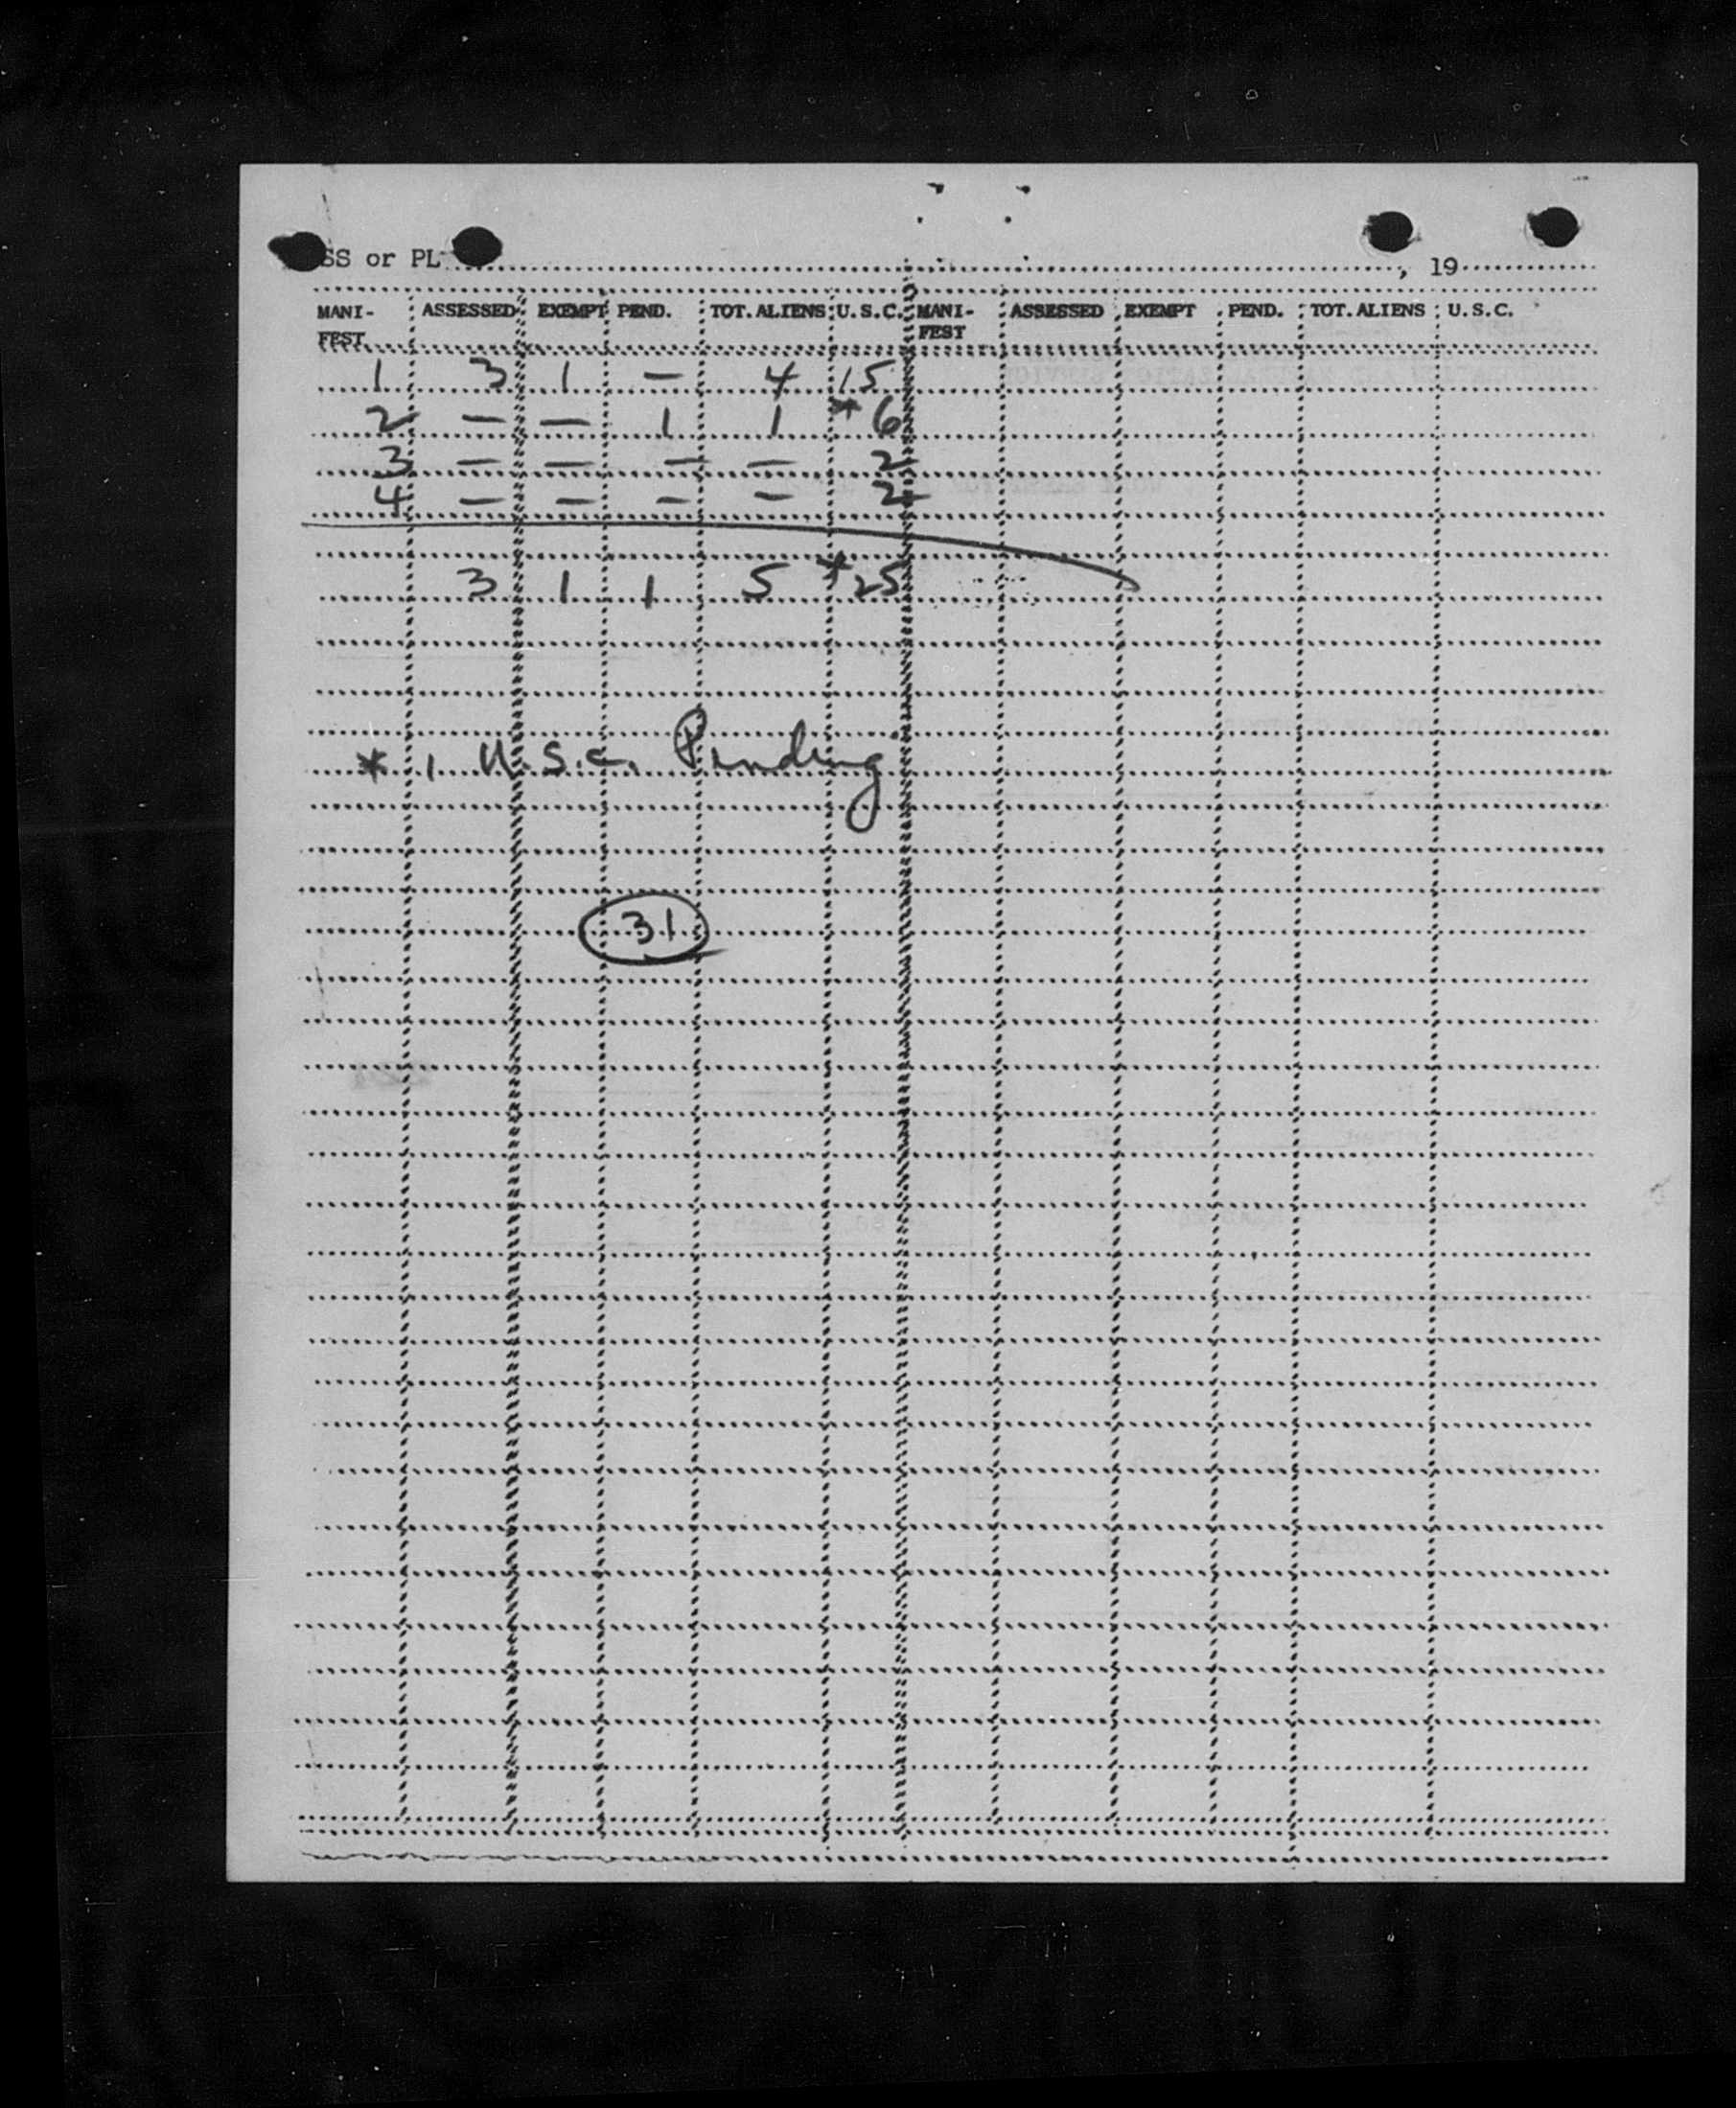 SS or PL , 19
MANI-FEST ASSESSED EXEMPT PEND. TOT. ALIENS U.S.C. MANI-FEST ASSESSED EXEMPT PEND. TOT. ALIENS U.S.C.
1 3 1 — 4 15
2 — — 1 1 * 6
3 — — — — 2
4 — — — — 2
3 1 1 5 * 25
* 1 U.S.C. Pending
31